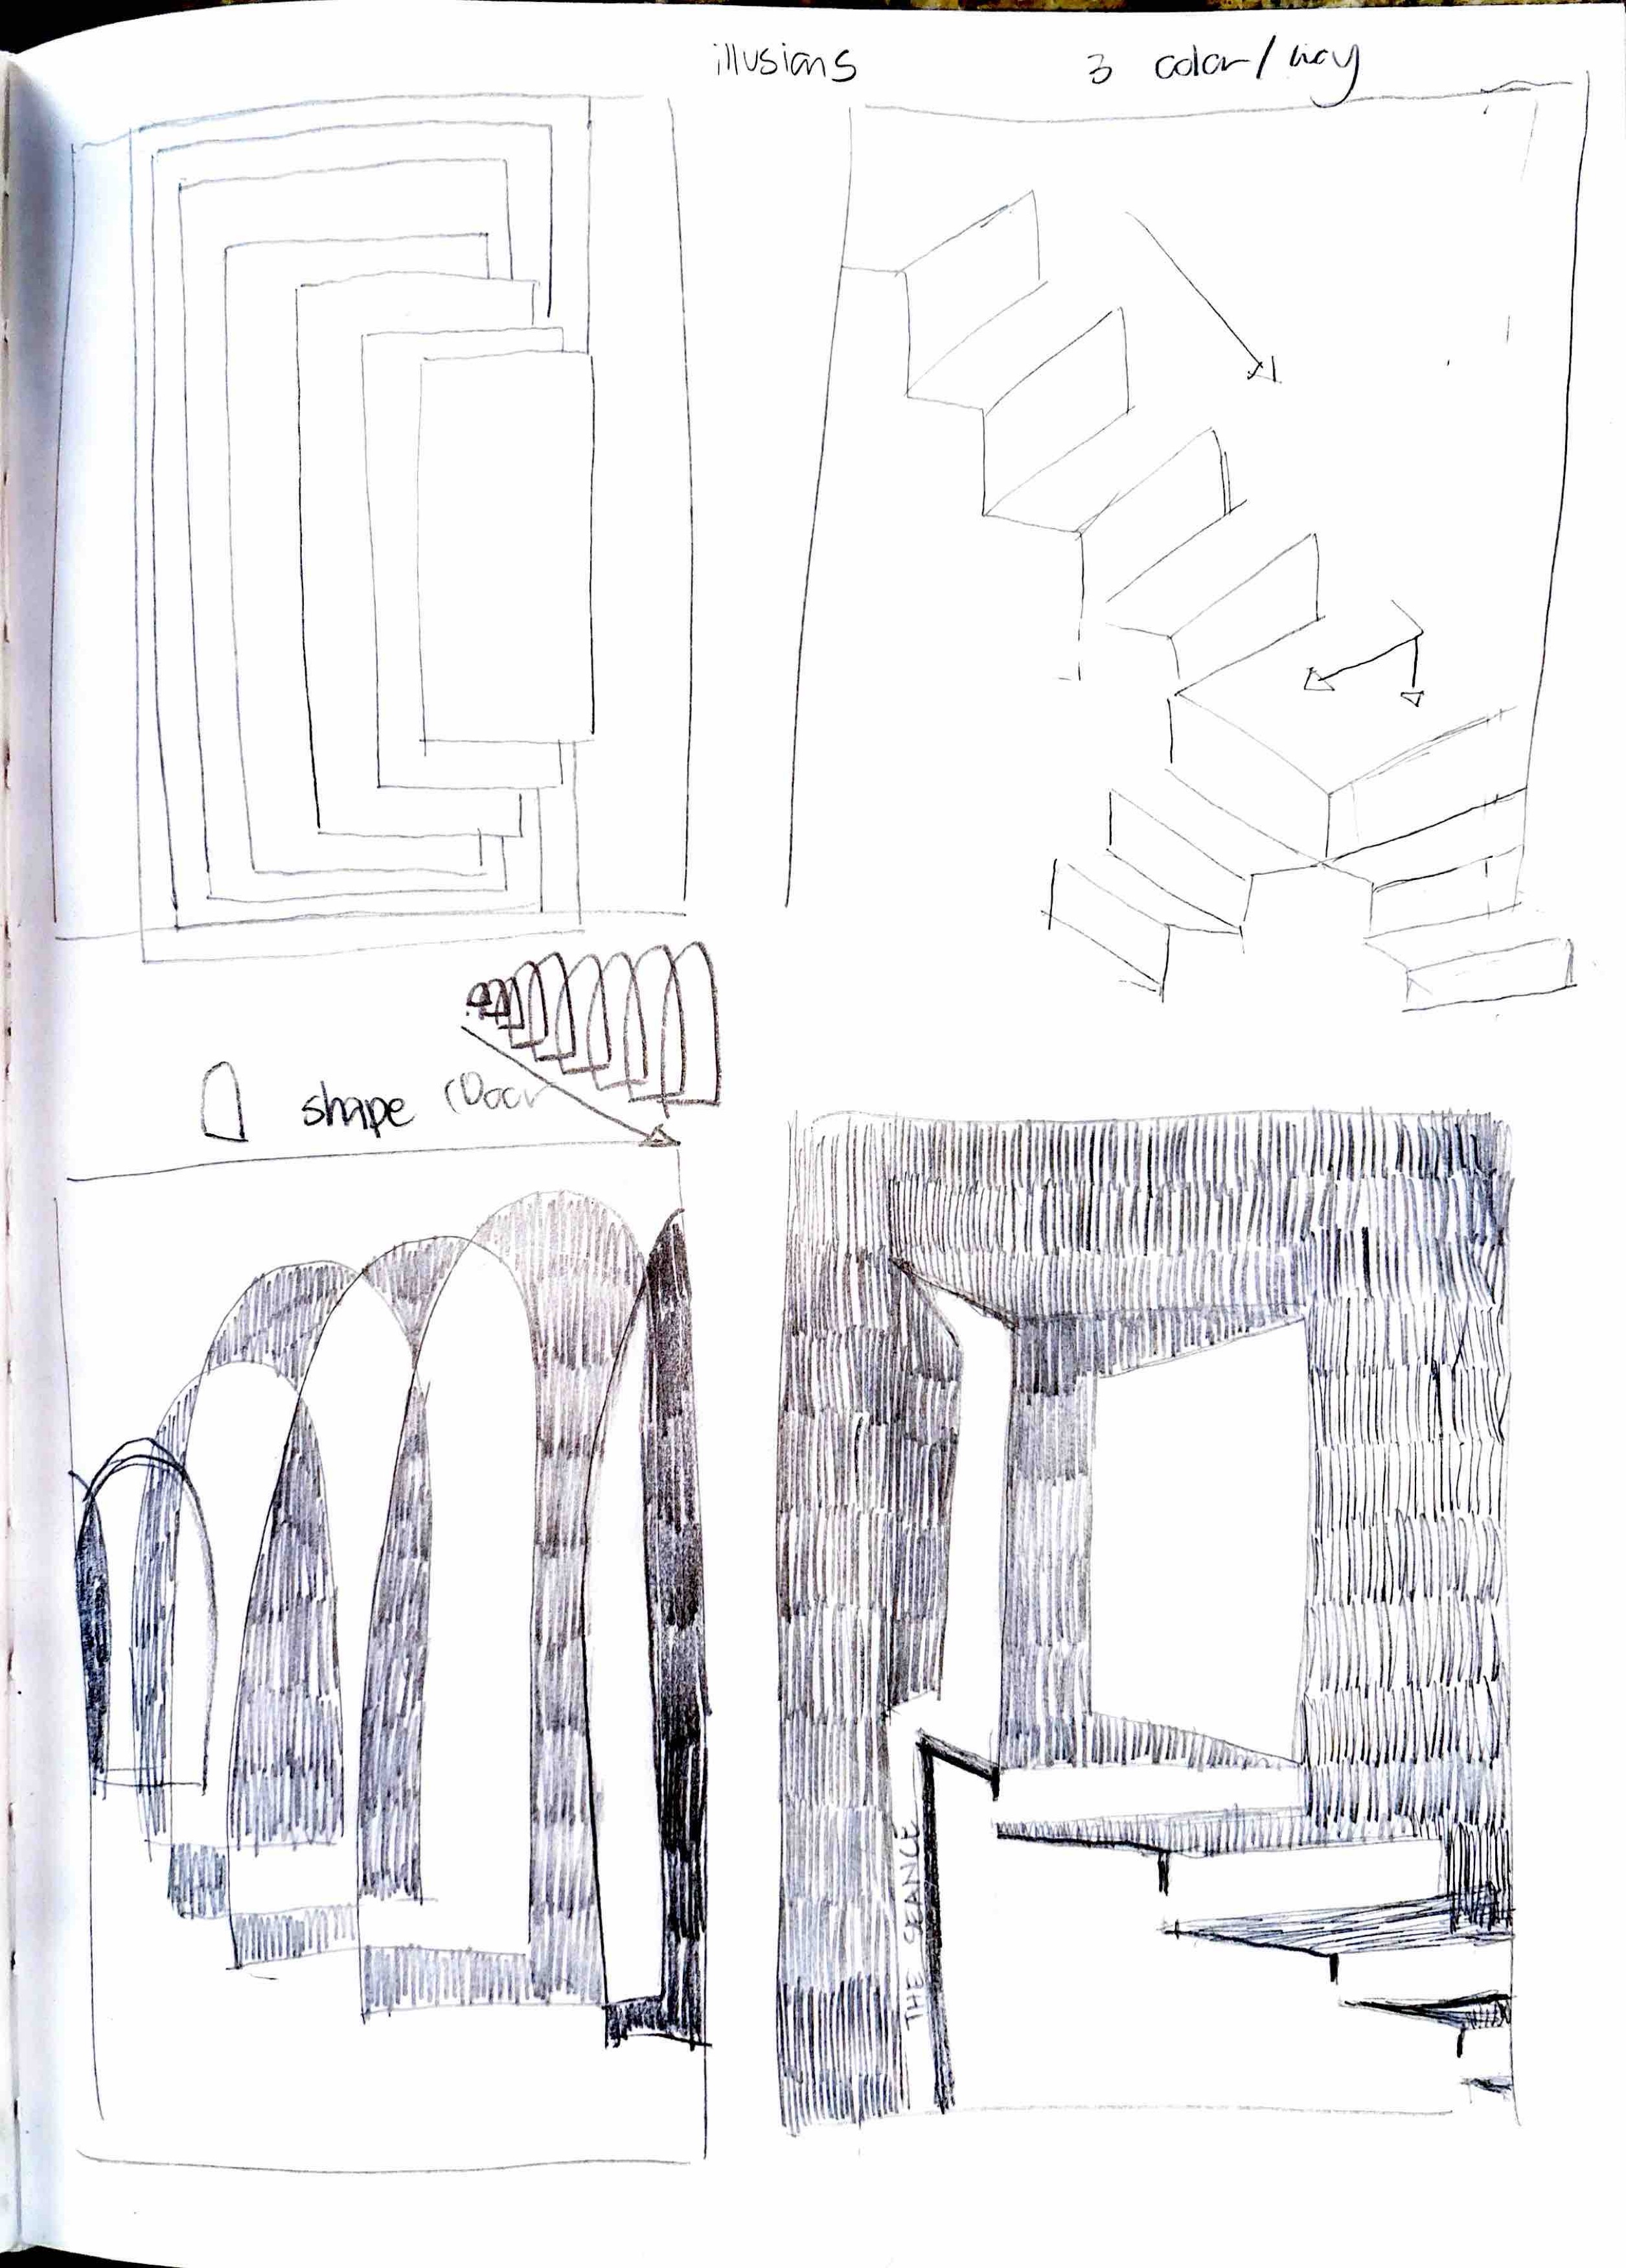 illusions
3 color/
shape (Door
THE SEANCE